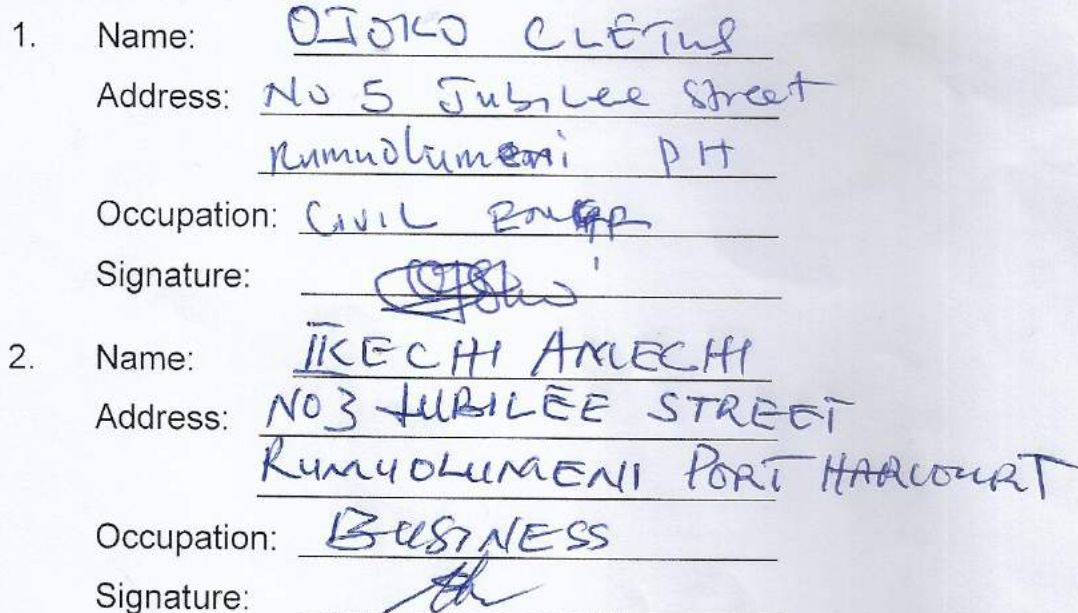 1. Name: OJOKO CLETUS
Address: No 5 Jubilee Street
Rumuolumeni PH
Occupation: CIVIL
Signature:
2. Name: IKECHI AMECHI
Address: NO3 JUBILEE STREET
RUMUOLUMENI PORT HARCOURT
Occupation: BUSINESS
Signature: